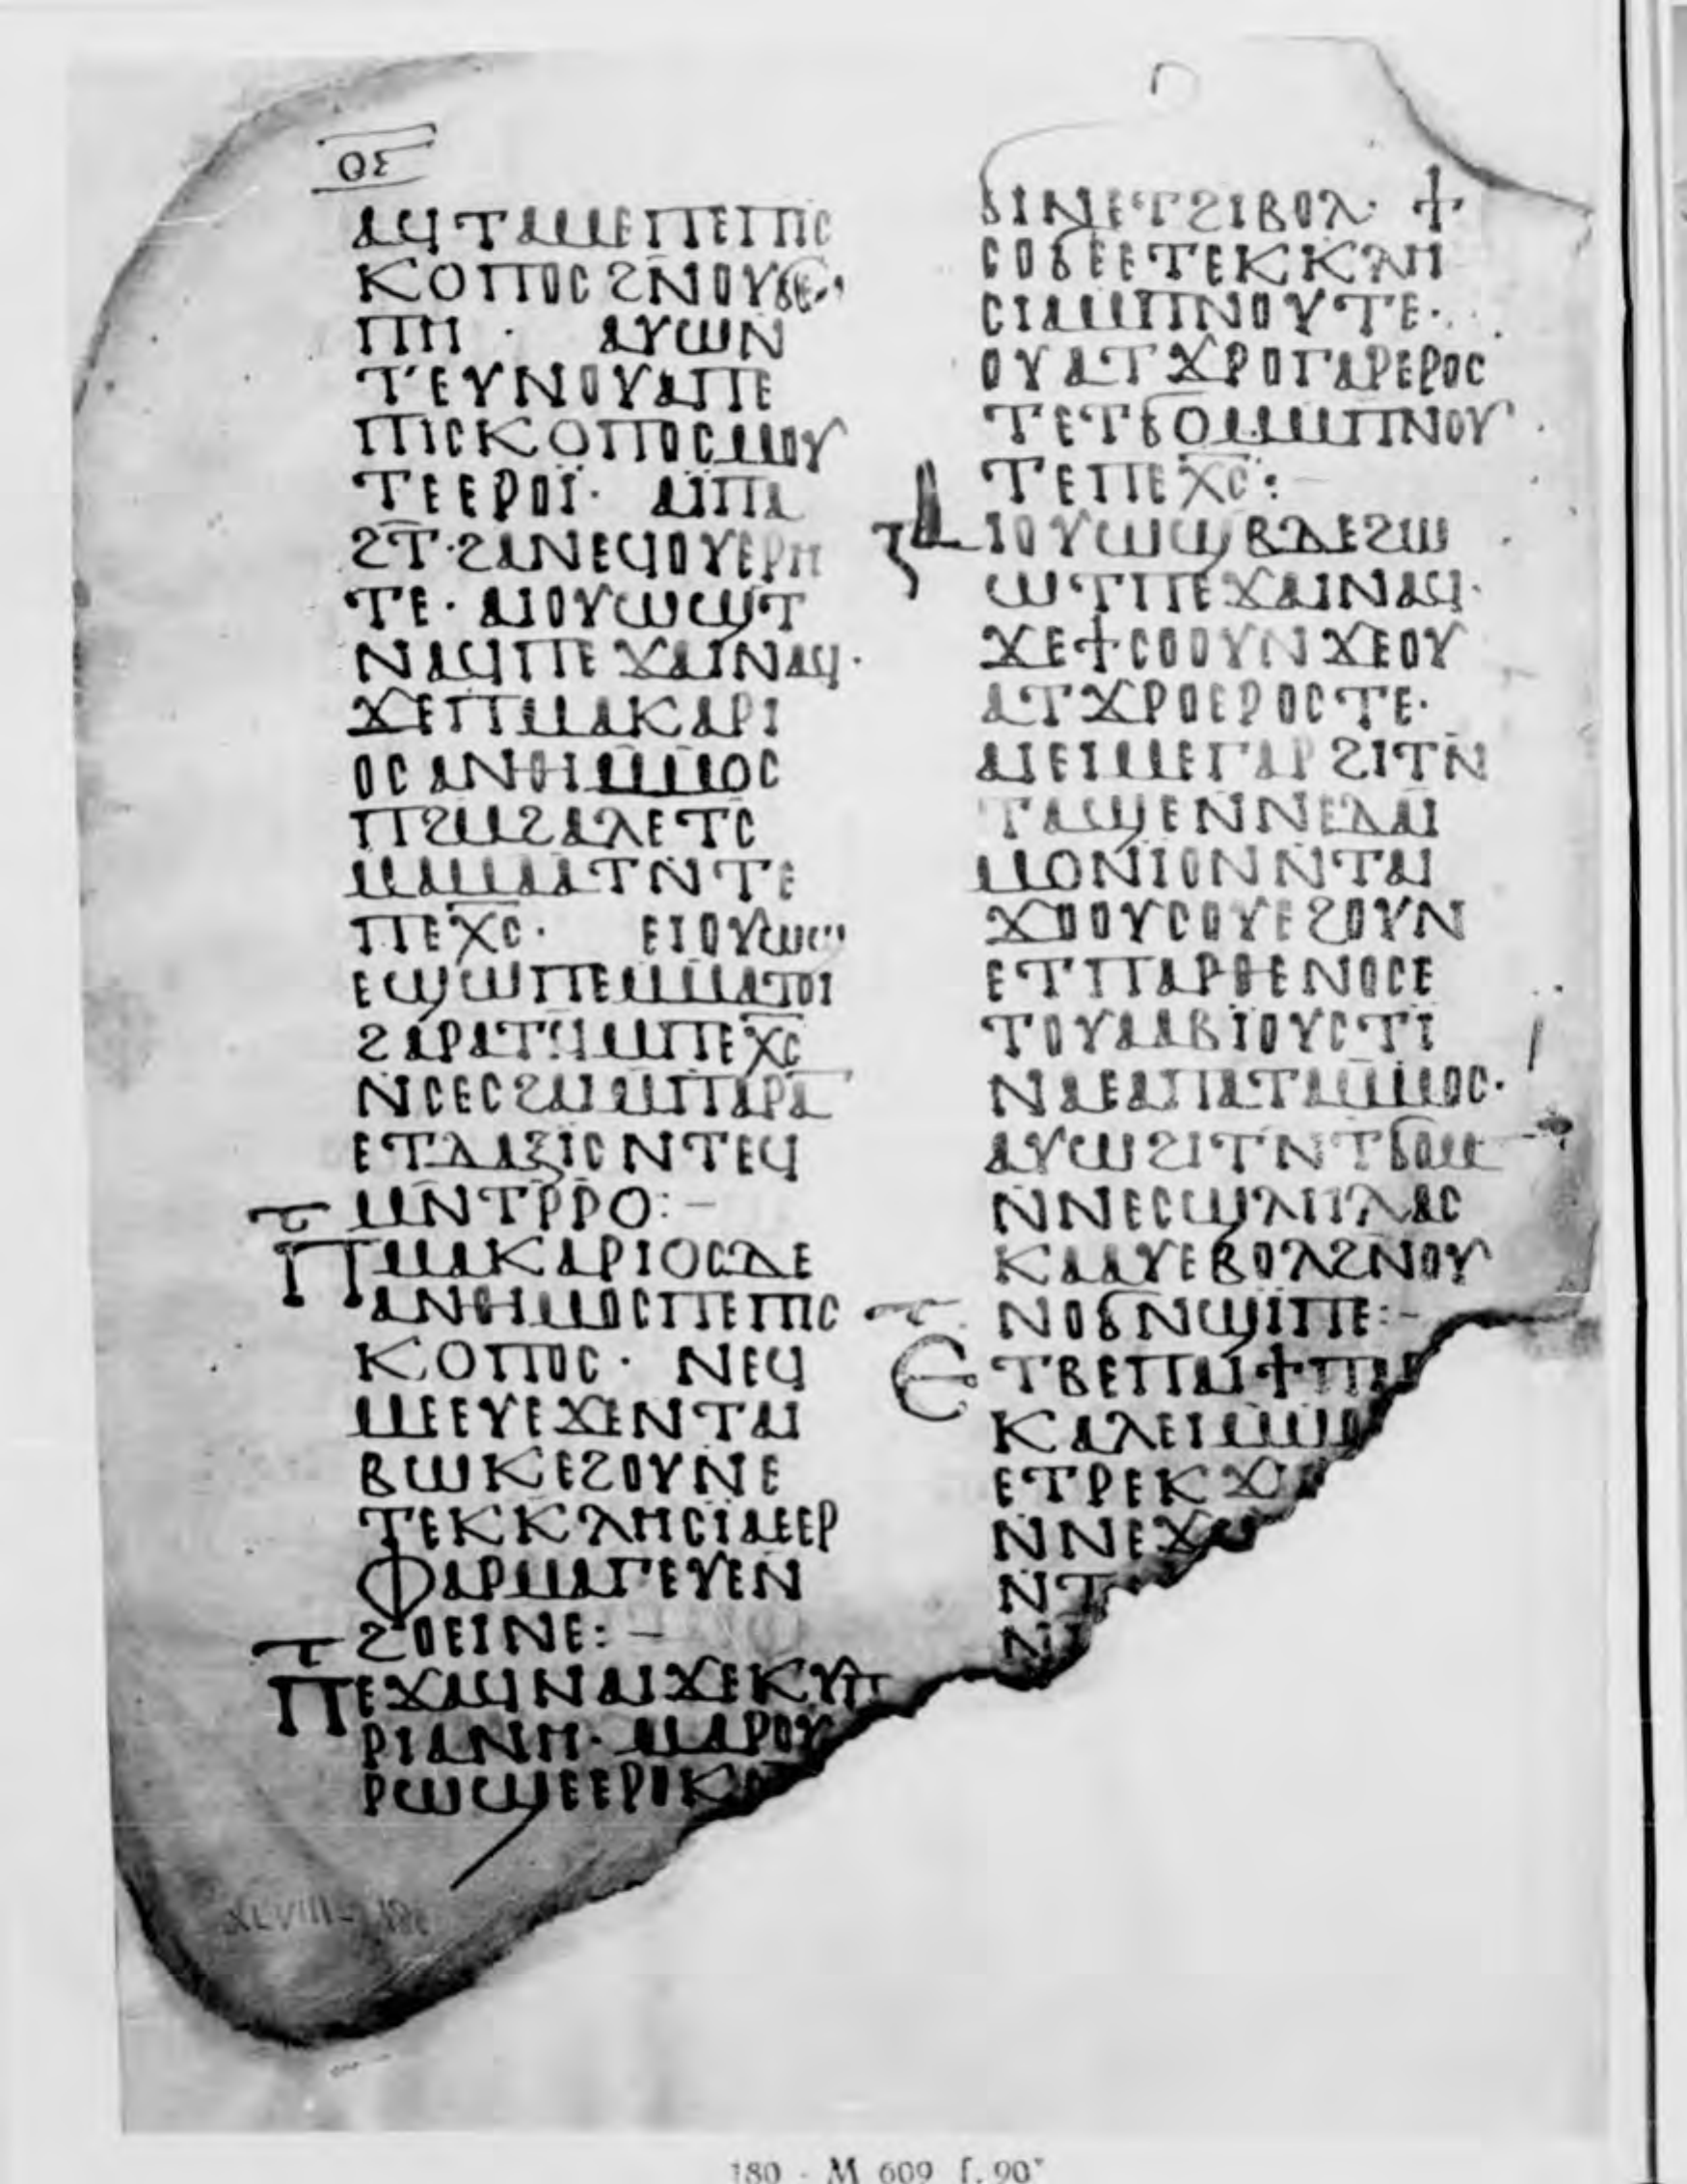 ⲟⲋ
ⲁϥⲧⲁⲙⲉⲡⲉⲡⲓⲥ
ⲕⲟⲡⲟⲥϩⲛⲟⲩϭⲉ
ⲡⲏ · ⲁⲩⲱⲛ
ⲧⲉⲩⲛⲟⲩⲁⲡⲉ
ⲡⲓⲥⲕⲟⲡⲟⲥⲙⲟⲩ
ⲧⲉⲉⲣⲟⲓ̈· ⲁⲓ̈ⲡⲁ
ϩⲧ̅·ϩⲁⲛⲉϥⲟⲩⲉⲣⲏ
ⲧⲉ· ⲁⲓⲟⲩⲱϣⲧ
ⲛⲁϥⲡⲉϫⲁⲓⲛⲁϥ·
ϫⲉⲡⲙⲁⲕⲁⲣⲓ
ⲟⲥⲁⲛⲑⲓⲙⲟⲥ
ⲡϩⲙϩⲁⲗⲉⲧⲥ
ⲙⲁⲙⲁⲁⲧⲛⲧⲉ
ⲡⲉⲭ̅ⲥ̅· ⲉⲓⲟⲩⲱϣ
ⲉϣⲱⲡⲉⲙⲙⲁⲧⲟⲓ
ϩⲁⲣⲁⲧϥⲙⲡⲉⲭ̅ⲥ̅
ⲛⲥⲉⲥϩⲁⲓⲙⲡⲁⲣⲁ
ⲉⲧⲇⲁⲝⲓⲥⲛⲧⲉϥ
ⲙⲛⲧⲣⲣⲟ:–
ⲡⲙⲁⲕⲁⲣⲓⲟⲥⲇⲉ
ⲁⲛⲑⲓⲙⲟⲥⲡⲉⲡⲓⲥ
ⲕⲟⲡⲟⲥ· ⲛⲉϥ
ⲙⲉⲉⲩⲉϫⲉⲛⲧⲁⲓ
ⲃⲱⲕⲉϩⲟⲩⲛⲉ
ⲧⲉⲕⲕⲗⲏⲥⲓⲁⲉⲉⲣ
ⲫⲁⲣⲙⲁⲅⲉⲩⲉⲛ
ϩⲟⲉⲓⲛⲉ:–
ⲡⲉϫⲁϥⲛⲁⲓϫⲉⲕⲩⲡ
ⲣⲓⲁⲛⲏ· ⲙⲁⲣⲟⲩ
ⲣⲱϣⲉⲉⲣⲟⲕ
ϭⲓⲛⲉⲧϩⲓⲃⲟⲗ· ϯ
ⲥⲟϭⲉⲉⲧⲉⲕⲕⲗⲏ
ⲥⲓⲁⲙⲡⲛⲟⲩⲧⲉ·
ⲟⲩⲁⲧϫⲣⲟⲅⲁⲣⲉⲣⲟⲥ
ⲧⲉⲧϭⲟⲙⲙⲡⲛⲟⲩ
ⲧⲉⲡⲉⲭ̅ⲥ̅:
ⲁⲓⲟⲩⲱϣⲃⲇⲉϩⲱ
ⲱⲧⲡⲉϫⲁⲓⲛⲁϥ·
ϫⲉϯⲥⲟⲟⲩⲛϫⲉⲟⲩ
ⲁⲧϫⲣⲟⲉⲣⲟⲥⲧⲉ·
ⲁⲓⲉⲓⲙⲉⲅⲁⲣϩⲓⲧⲛ
ⲧⲁϣⲉⲛⲛⲉⲇⲁⲓ
ⲙⲟⲛⲓⲟⲛⲛⲧⲁⲓ
ϫⲟⲟⲩⲥⲟⲩⲉϩⲟⲩⲛ
ⲉⲧⲡⲁⲣⲑⲉⲛⲟⲥⲉ
ⲧⲟⲩⲁⲁⲃⲓⲟⲩⲥⲧⲓ
ⲛⲁⲉⲁⲡⲁⲧⲁⲙⲙⲟⲥ·
ⲁⲩⲱϩⲓⲧⲛⲧϭⲟⲙ
ⲛⲛⲉⲥϣⲗⲏⲗⲁⲥ
ⲕⲁⲁⲩⲉⲃⲟⲗϩⲛⲟⲩ
ⲛⲟϭⲛϣⲓⲡⲉ:–
ⲉⲧⲃⲉⲡⲁⲓϯⲡⲁⲣ
ⲕⲁⲗⲉⲓⲙⲙⲟ
ⲉⲧⲣⲉⲕϫⲓ
ⲛⲛⲉⲭ
ⲛⲧ
ⲛ
XLVIII
180 - M 609 f. 90ᵛ